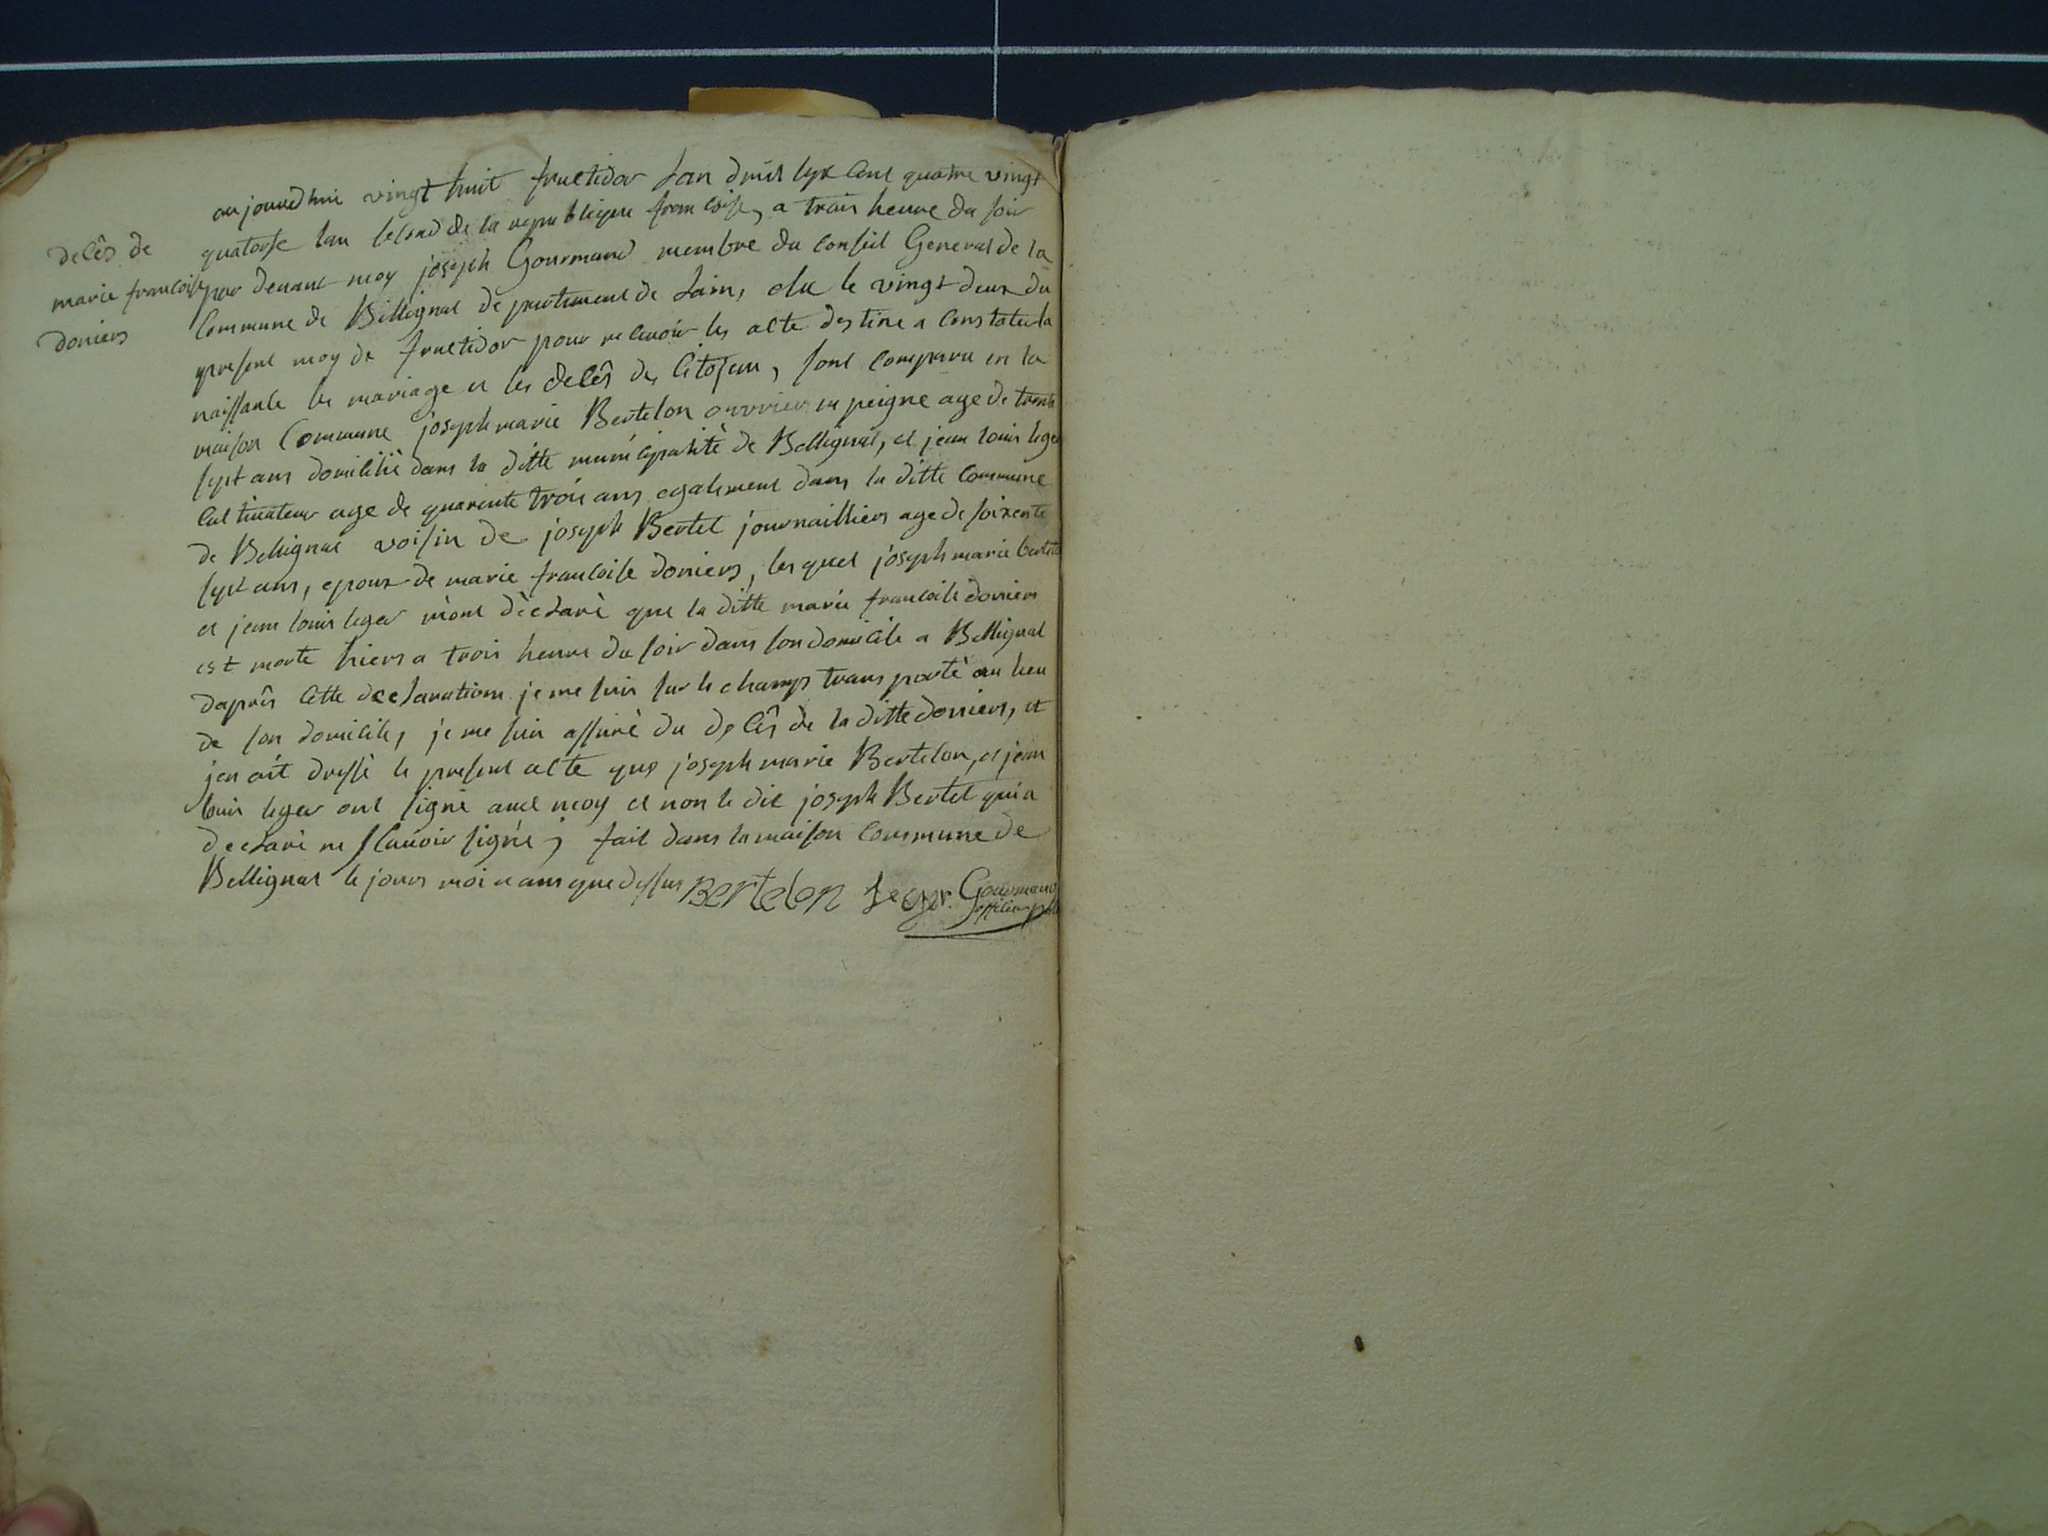 decês de
marie francoise
doniers
aujourdhui vingt huit fructidor lan mil sept cent quatre vingt
quatorse lan second de la republique francoise, a trois heure du soir
par devant moy joseph Gourmand membre du conseil General de la
Commune de Bellignat departement de Lain, elu le vingt deux du
present moy de fructidor pour recevoir les acte destine a constater la
naissance les mariage et les decês des Citojens, sont comparu en la
maison Commune joseph marie Bertelon ouvrier en peigne age de trente
sept ans domicilié dans la ditte municipalité de Bellignat, et jean louis leger
cultivateur age de quarente trois ans egalement dans la ditte commune
de Bellignat voisin de joseph Bertet journailliers age de soixente
sept ans, epoux de marie francoise doniers, les quel joseph marie
et jean louis leger mont déclaré que la ditte marie francoise doniers
est morte hiers a trois heure du soir dans son domicile a Bellignat
daprês cette declaration je me suis sur le champs transporté au lieu
de son domicile, je me suis assuré du decês de la ditte doniers, et
jen ait dressé le present acte que joseph marie Bertelon, et jean
louis leger ont signé avec moy et non le dit joseph Bertet qui a
declaré ne scavoir signé, fait dans la maison commune de
Bellignat le jours moi et ans que dessus Bertelon Leger. Gourmand
officier